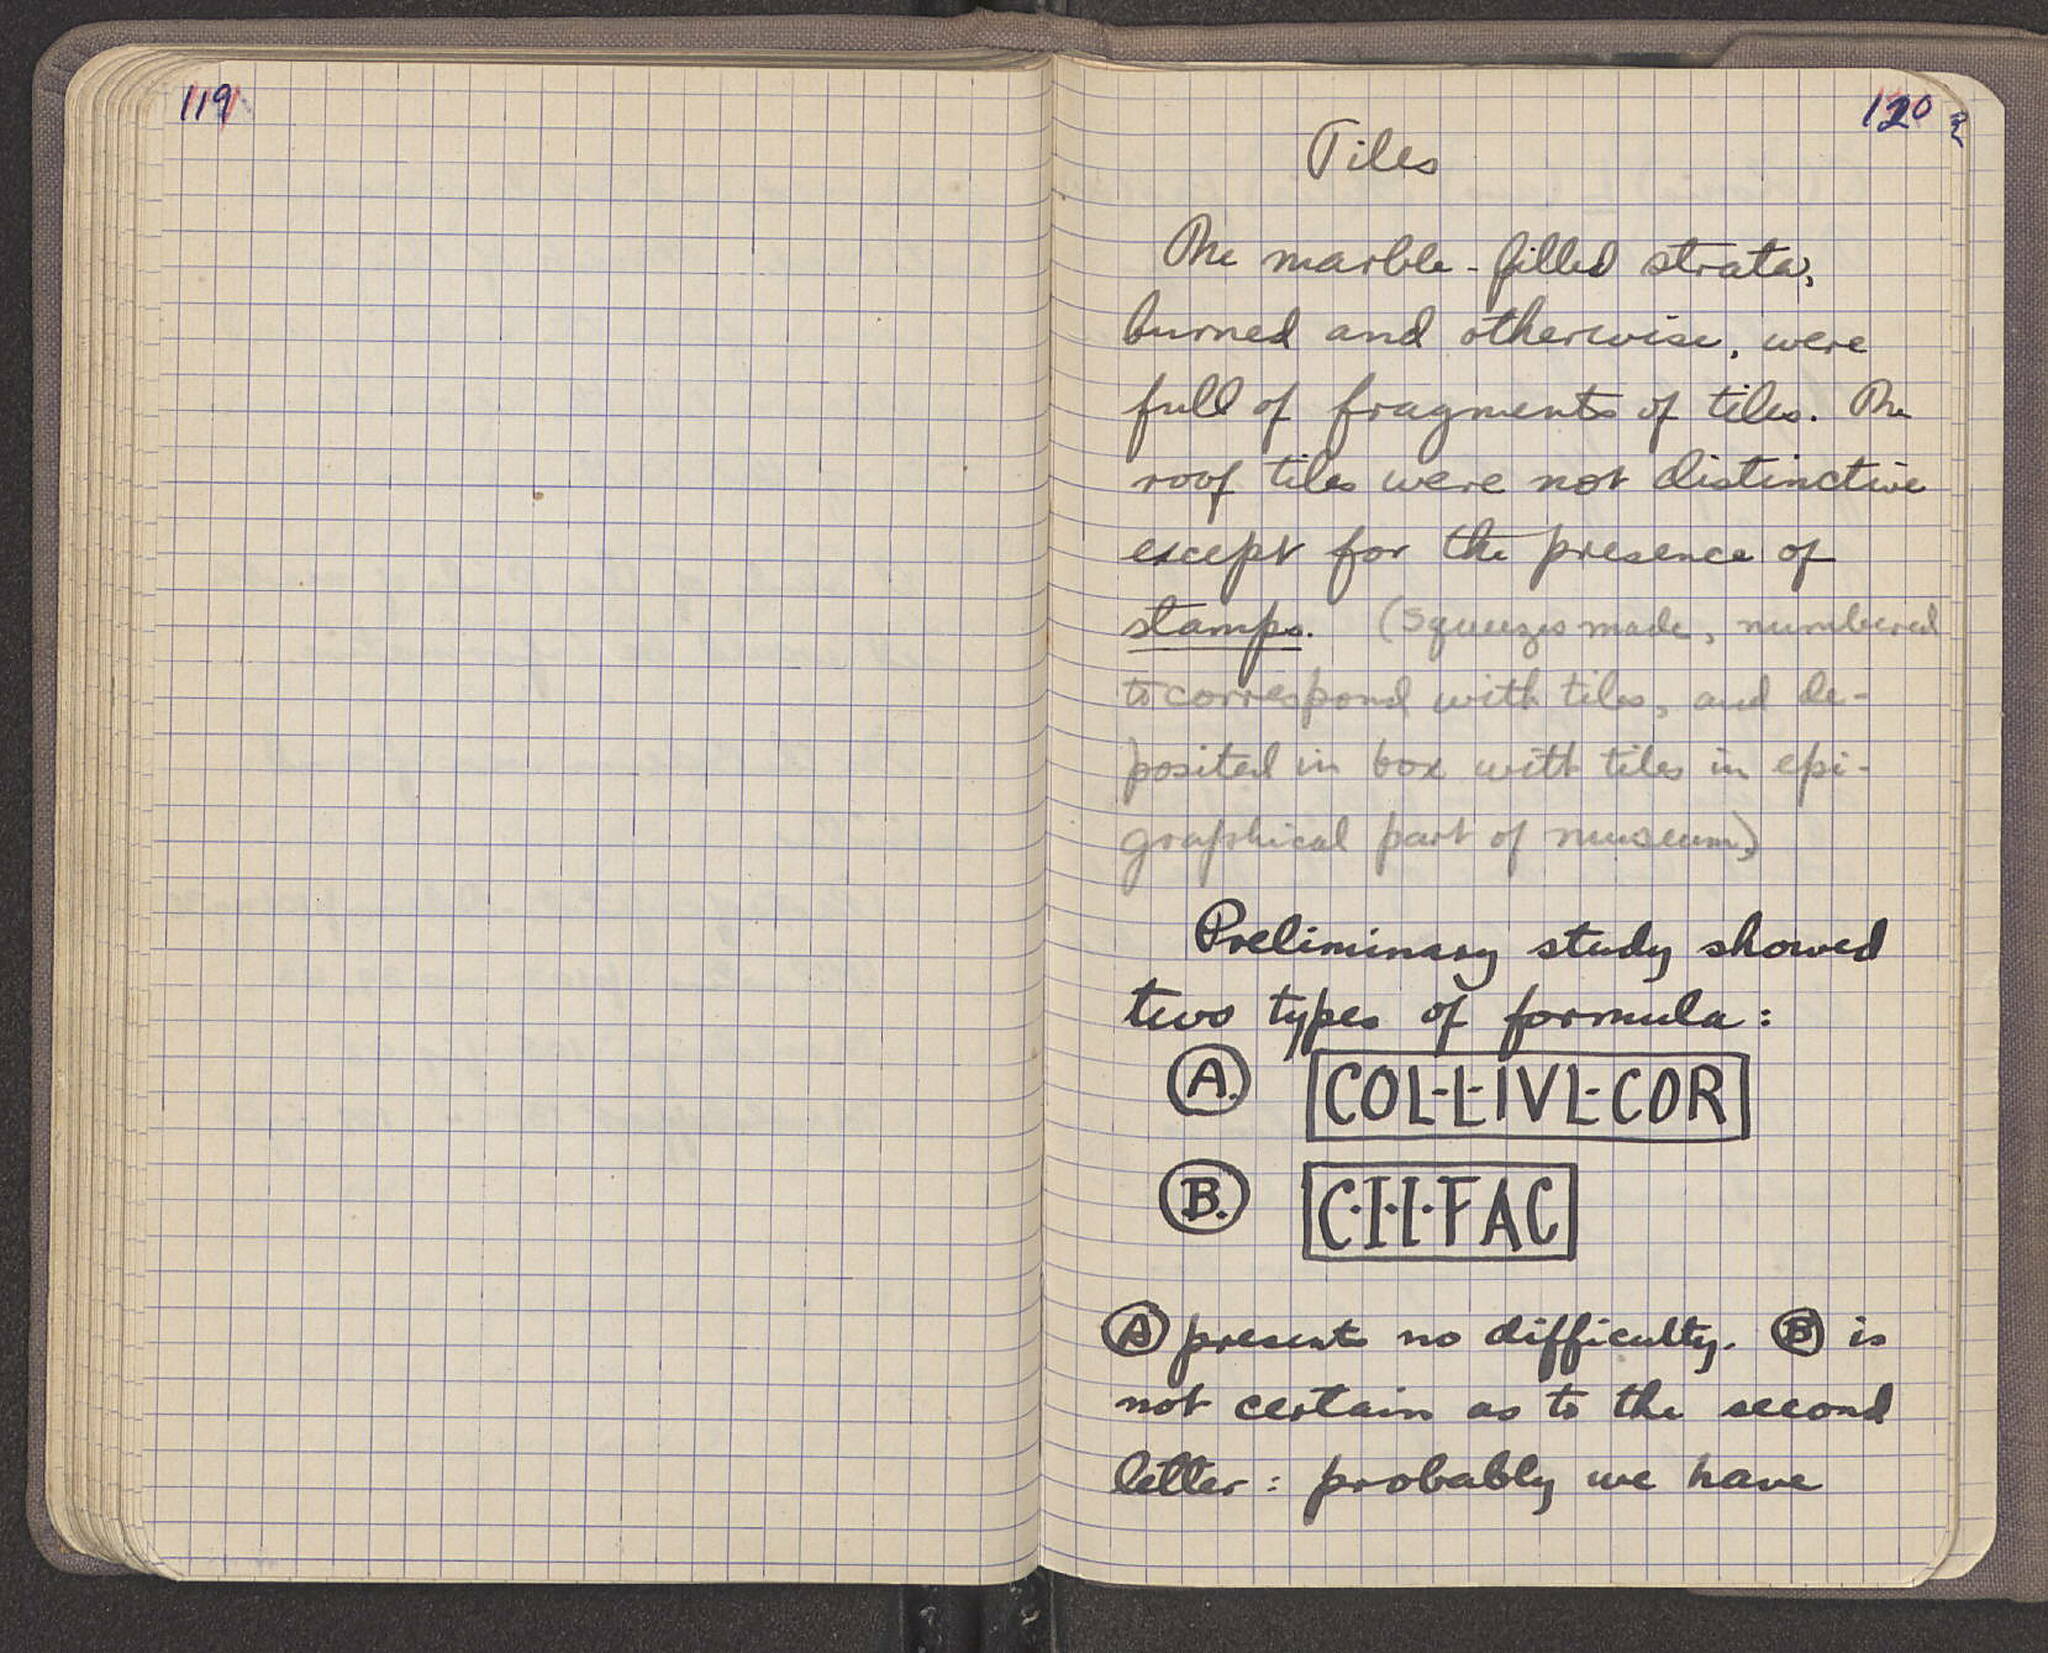 119
120
Tiles
The marble-filled strata,
burned and otherwise, were
full of fragments of tiles. The
roof tiles were not distinctive
except for the presence of
stamps. (Squeezes made, numbered
to correspond with tiles, and de-
posited in box with tiles in epi-
graphical part of museum)
Preliminary study showed
two types of formula:
A. COL·L·IVL·COR
B. C·I·I·FAC
A presents no difficulty. B is
not certain as to the second
letter: probably we have